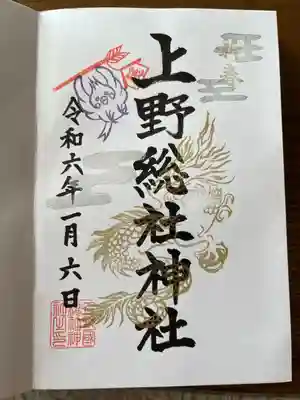 迎春
上野総社神社
令和六年一月六日